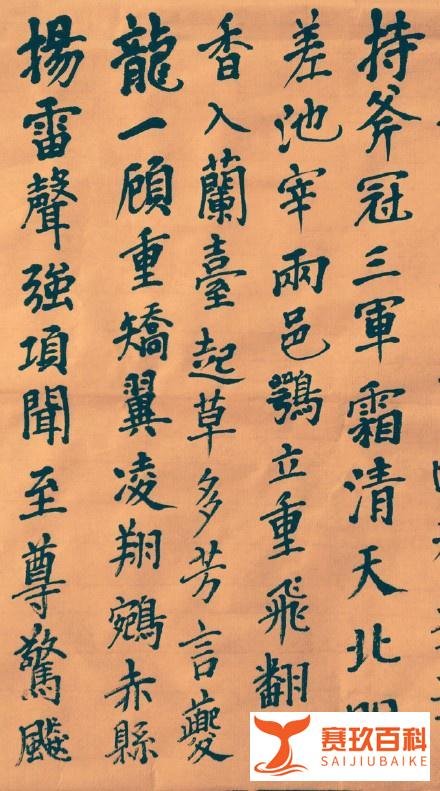 持斧冠三軍霜清天北
差池宰兩邑鶚立重飛翻
香入蘭臺起草多芳言夔
龍一顧重矯翼凌翔鵷赤縣
揚雷聲強項聞至尊驚飈
赛玖百科
SAIJIUBAIKE